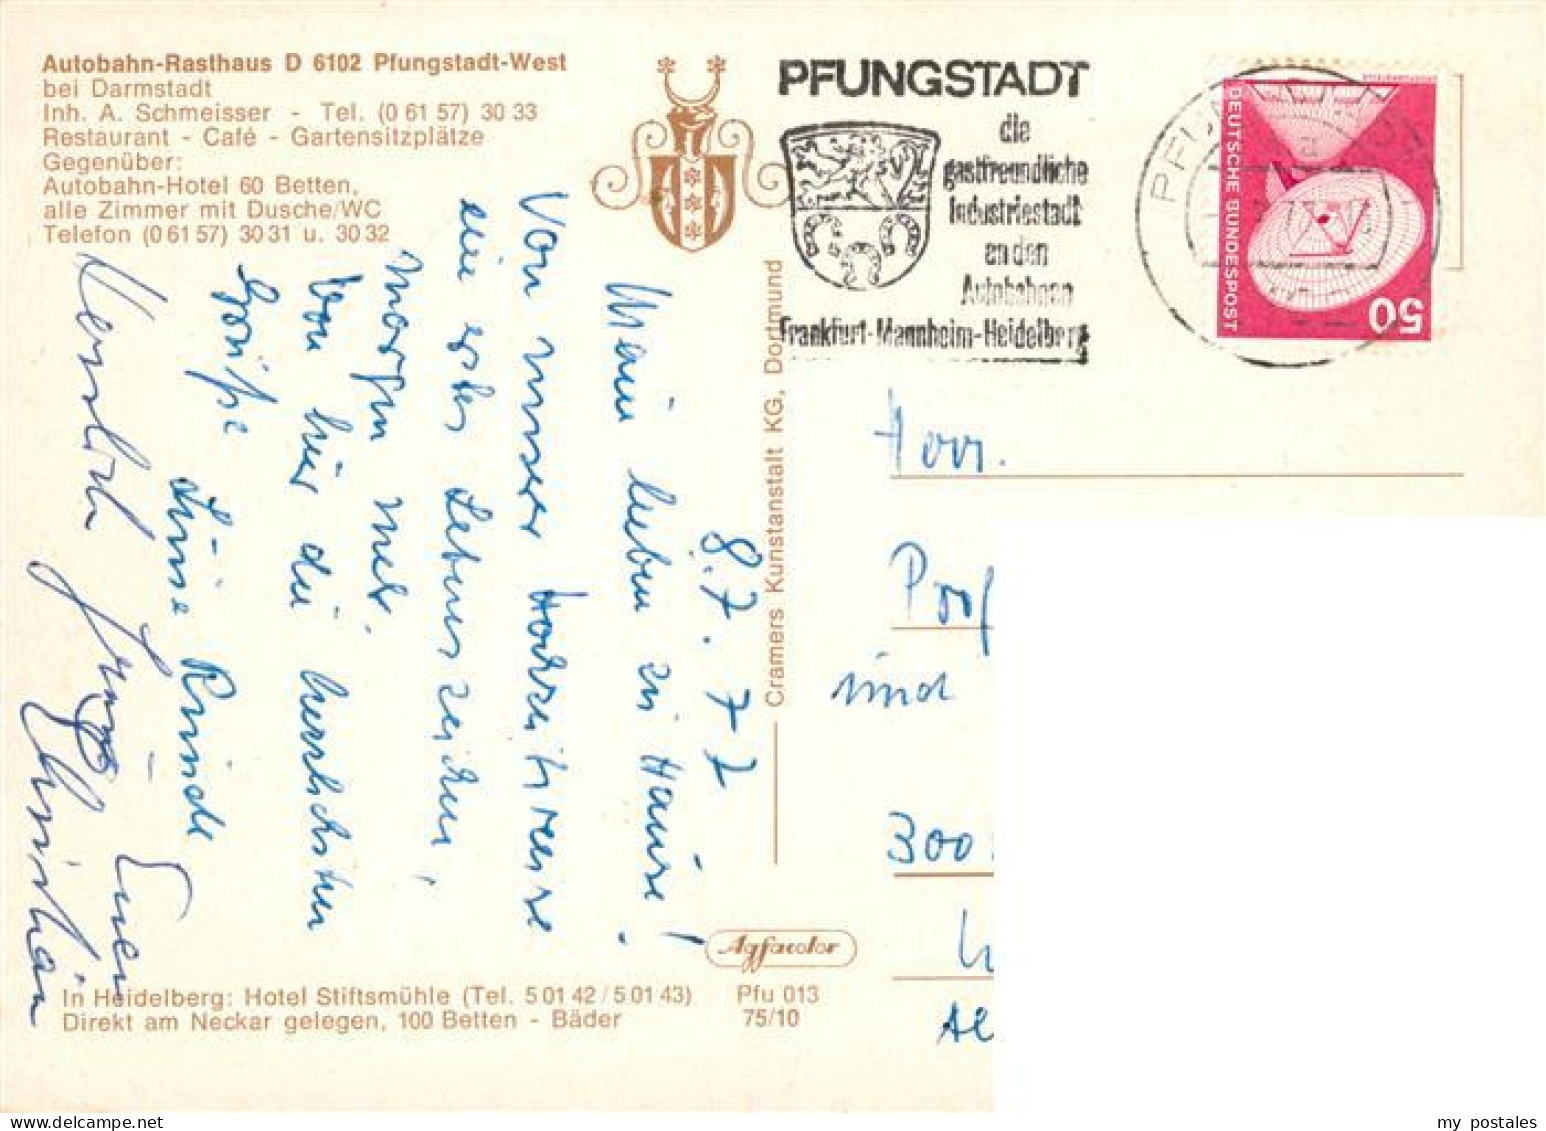 Autobahn-Rasthaus D 6102 Pfungstadt-West
bei Darmstadt
Inh. A. Schmeisser - Tel. (0 61 57) 30 33
Restaurant - Café - Gartensitzplätze
Gegenüber:
Autobahn-Hotel 60 Betten,
alle Zimmer mit Dusche/WC
Telefon (0 61 57) 30 31 u. 30 32
8.7.77
Meine Lieben zu Hause!
Von unserer Hochzeitsreise
ein erstes Lebenszeichen,
morgen mehr.
Von hier die herzlichsten
Grüße
Herzlich Euer
Christian
Cramers Kunstanstalt KG, Dortmund
PFUNGSTADT
die
gastfreundliche
Industriestadt
an den
Autobahnen
Frankfurt-Mannheim-Heidelberg
DEUTSCHE BUNDESPOST
50
Prof
und
300
Agfacolor
In Heidelberg: Hotel Stiftsmühle (Tel. 5 01 42 / 5 01 43)
Direkt am Neckar gelegen, 100 Betten - Bäder
Pfu 013
75/10
my postales